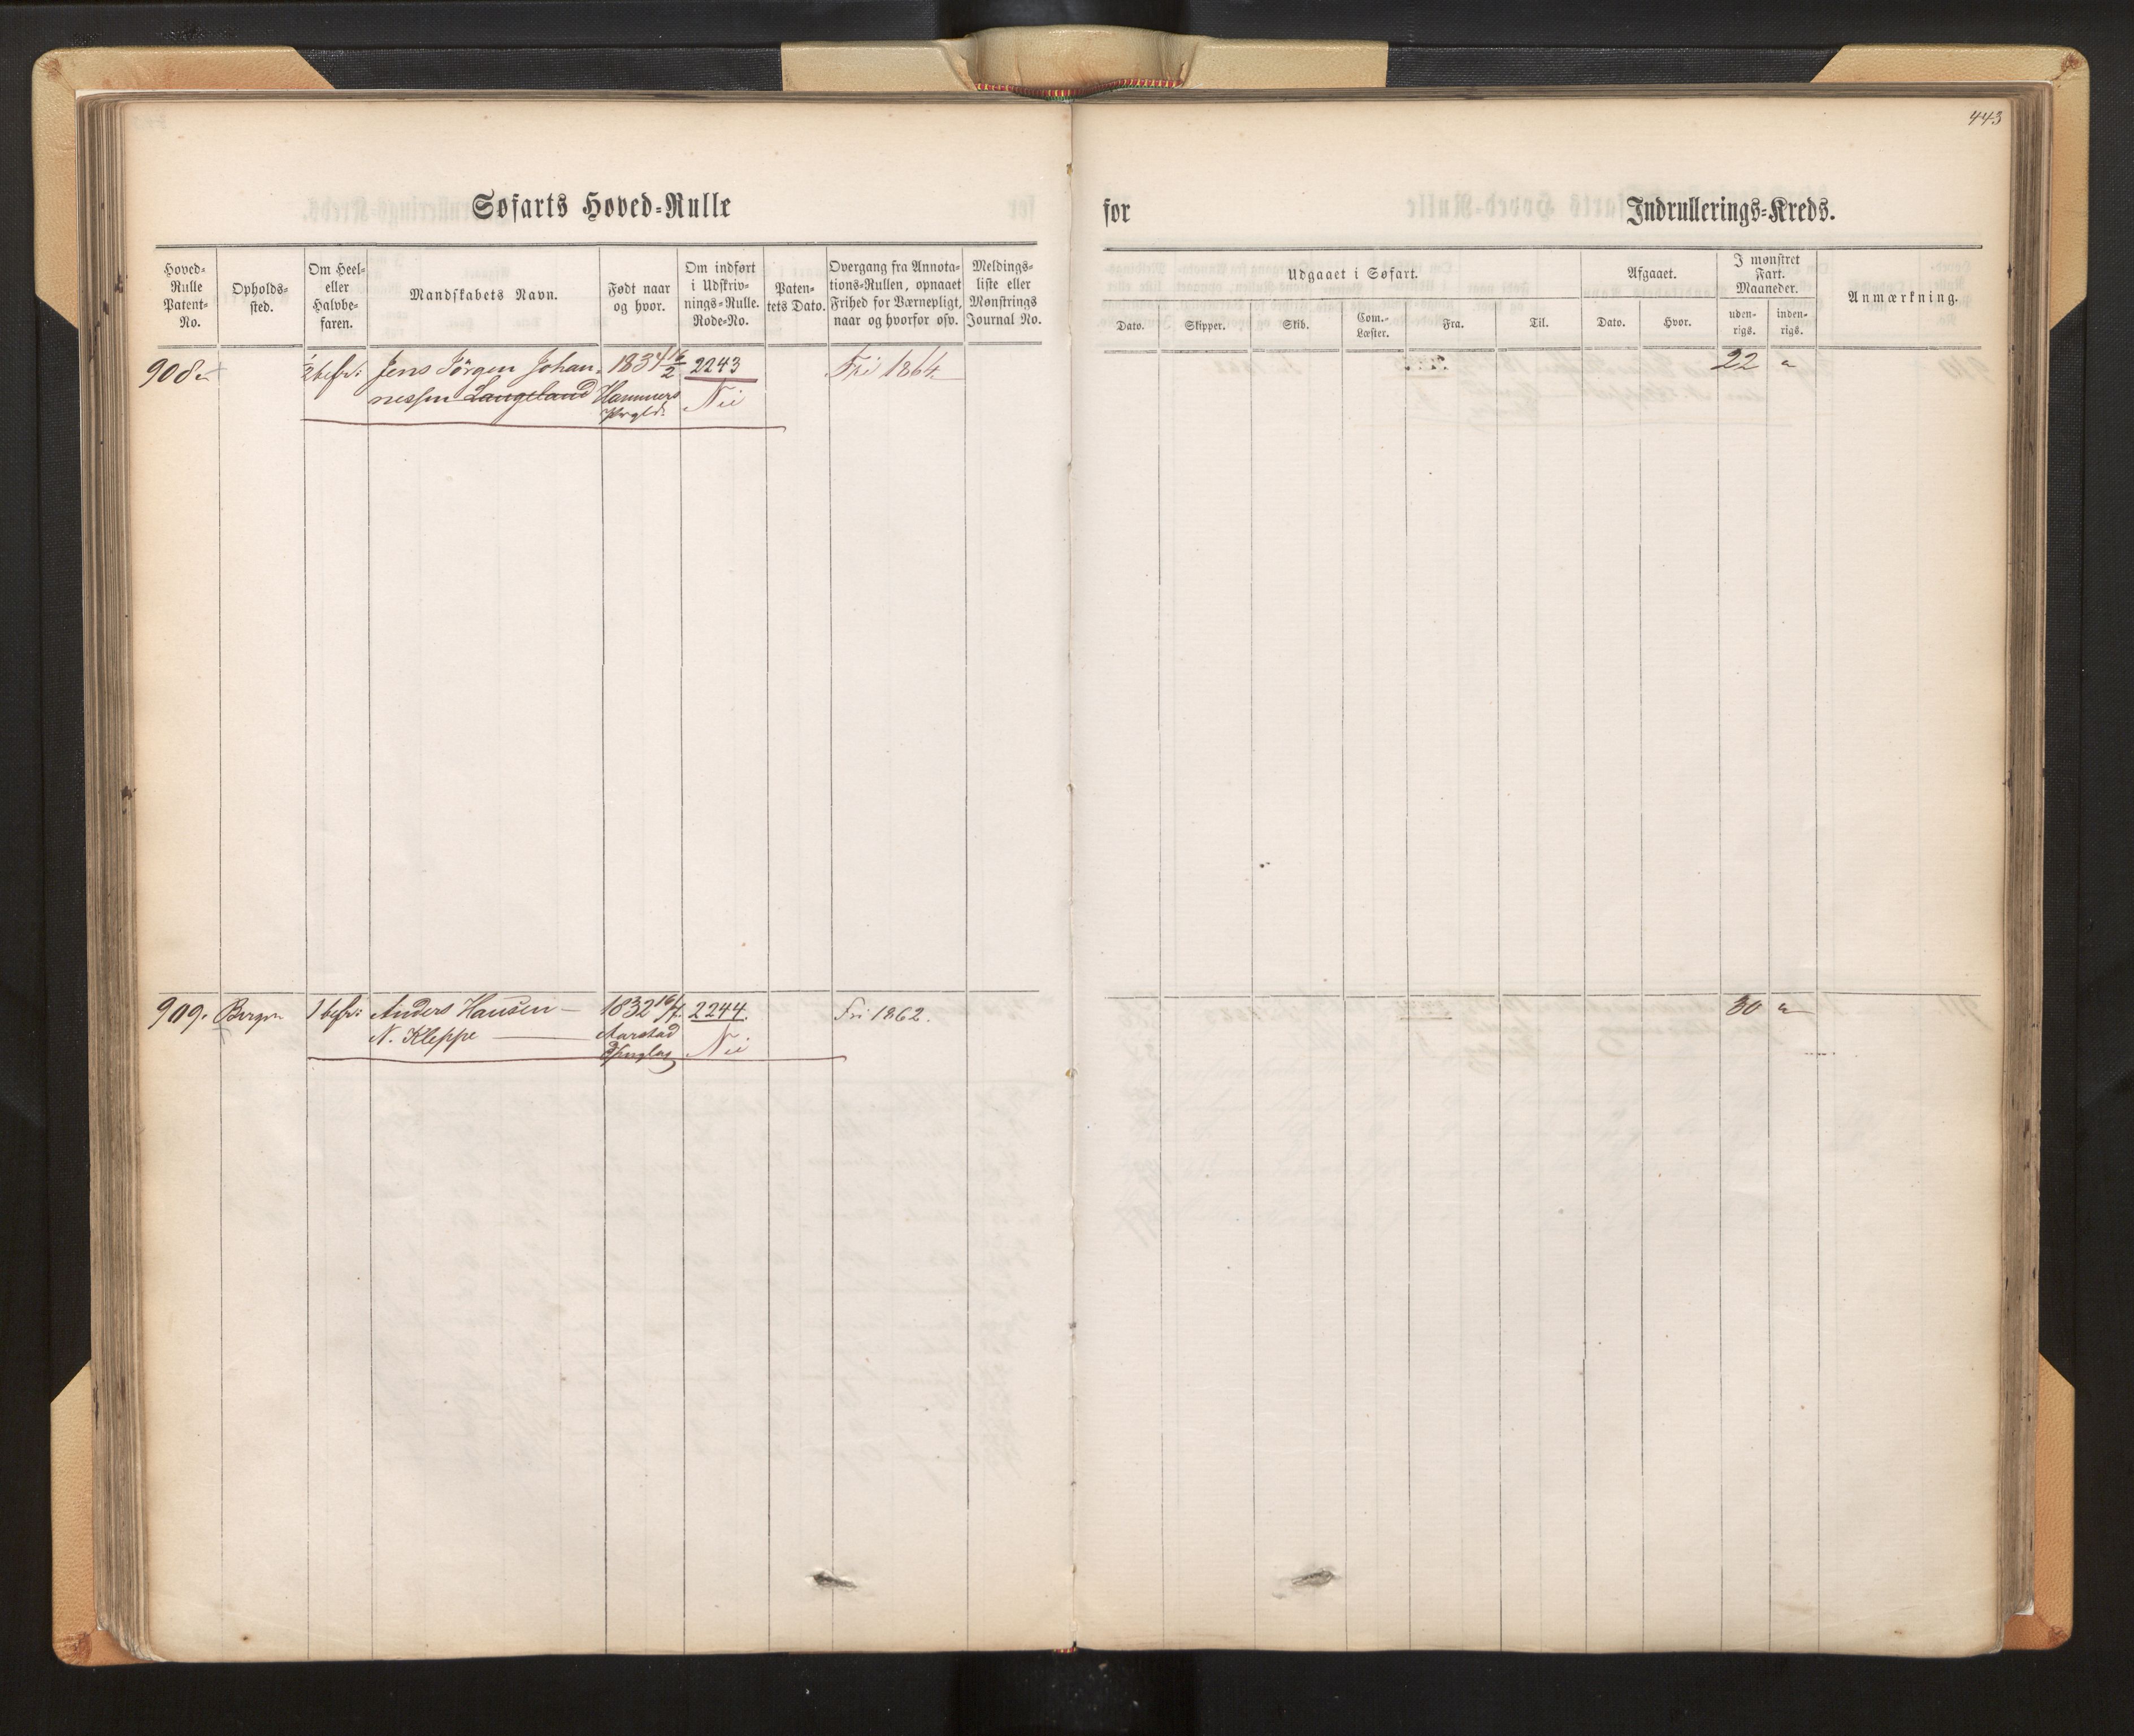 443
Søfarts Hoved=Rulle
for Indrullerings=Kreds.
Hoved=Rulle Patent=No.
Opholds=sted.
Om Heel= eller Halvbe=faren.
Mandskabets Navn.
Født naar og hvor.
Om indført i Udskriv=nings=Rulle. Rode=No.
Paten=tets Dato.
Overgang fra Annota=tions=Rullen, opnaaet Frihed for Værnepligt, naar og hvorfor osv.
Meldings=liste eller Mønstrings Journal No.
Udgaaet i Søfart.
Dato. Skipper. Skib. Com.=Læster. Fra. Til.
Afgaaet.
Dato. Hvor.
I mønstret Fart. Maaneder.
uden=rigs. inden=rigs.
Anmærkning.
908 1/2 befr: Jens Jörgen Johan- 1834 16/2 2243 Fri 1864 22
nessen Langeland Hammers Nei
Prgld:
909. Bergen 1 befr: Anders Hansen 1832 2244. Fri 1862. 30
N. Kleppe Aarstad Nei